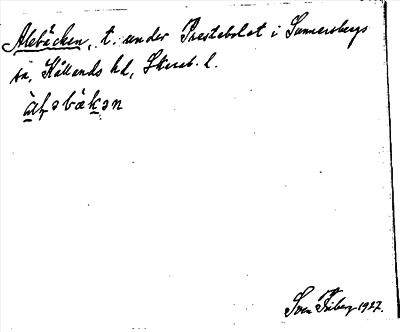 Alebäcken, t. under Prestebolet i Sunnersbergs
sn, Kållands hd, Skarab. l.
àləbäkən
Sven Friberg 1927.